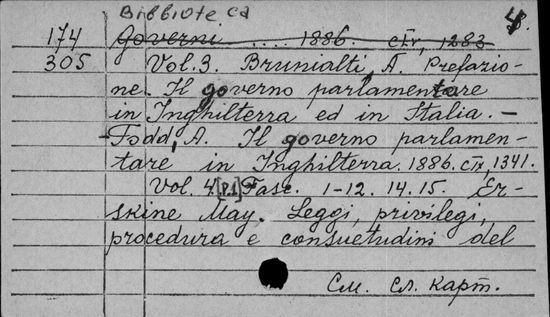 Biblioteca 4.
174 Governi .... 1886. CIV, 1283
305 Vol. 3. Brunialti, A. Prefazio-
ne. Il governo parlamentare
in Inghilterra ed in Italia. –
-Todd, A. Il governo parlamen-
tare in Inghilterra. 1886. CIV, 1341.
Vol. 4 [p.1] Fasc. 1-12. 14. 15. Er-
skine May. Leggi, privilegi,
procedura e consuetudini del
См. сл. карт.